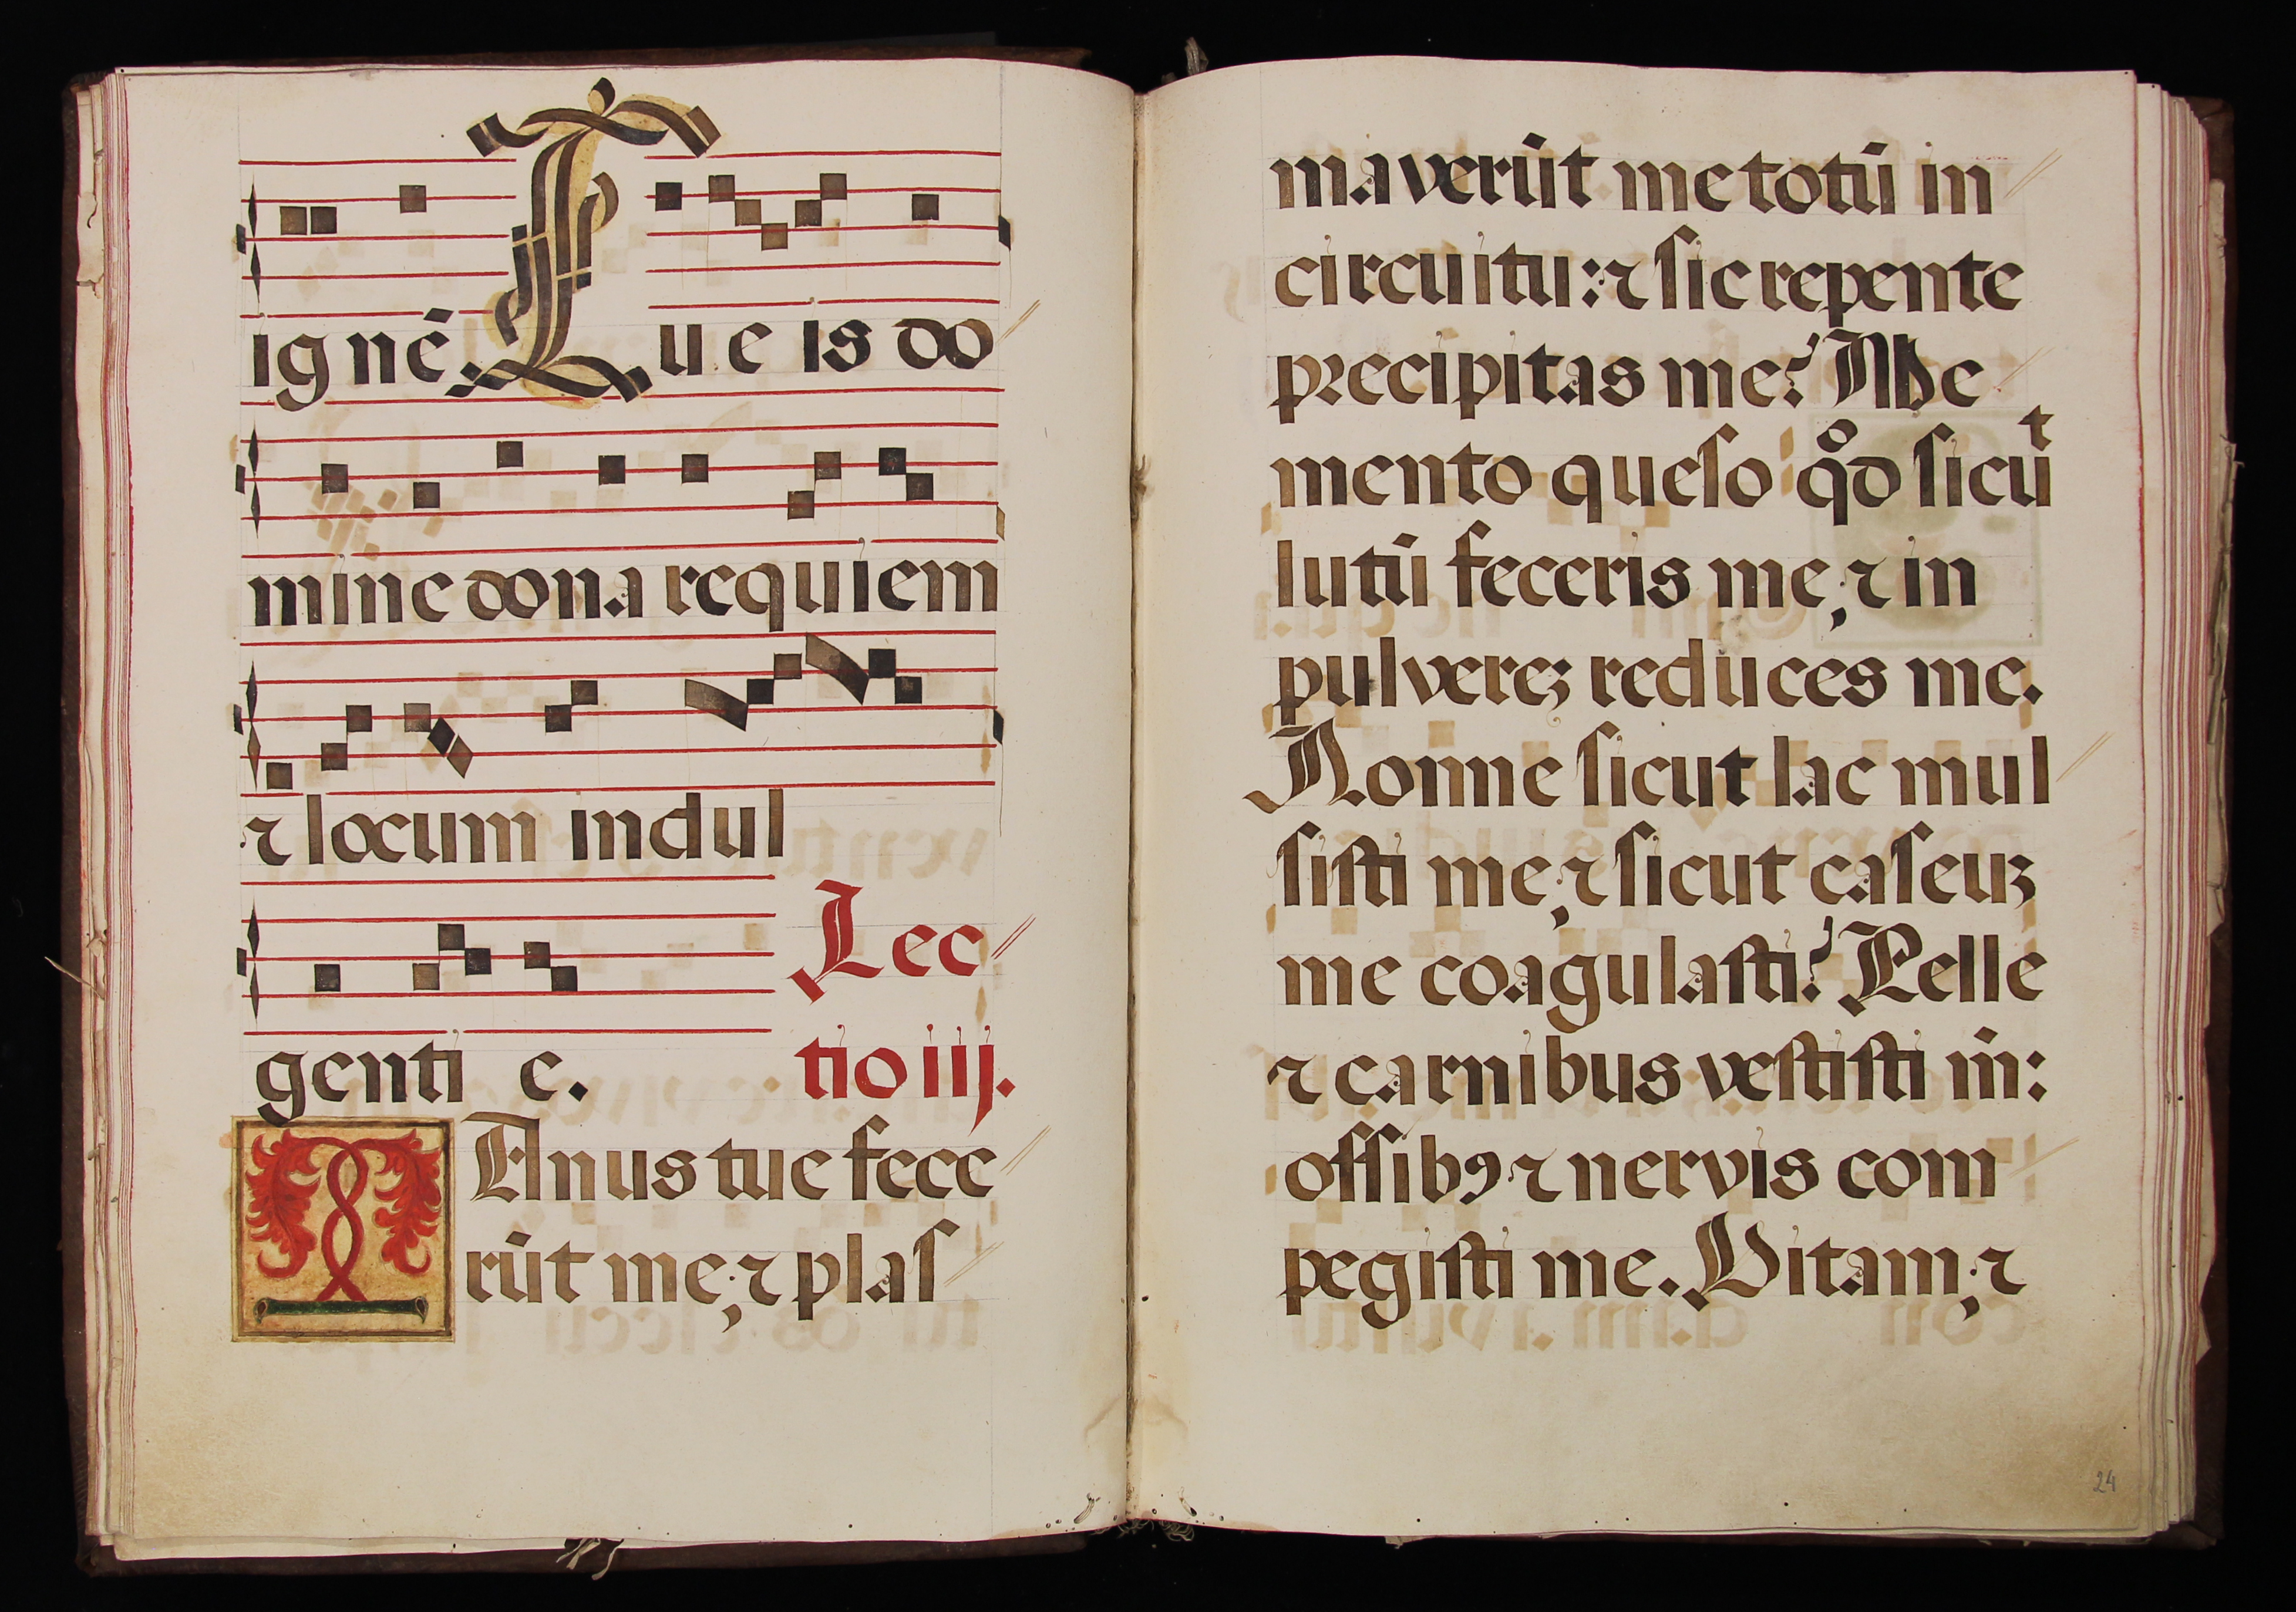 ignē Tu eis do
mine dona requiem
⁊ locum indul
Lec
genti e.
tio iij.
MAnus tue fece
rūt me; ⁊ plaſ
maverūt me totū in
circuitu: ⁊ ſic repente
precipitas me? Me
mento queſo qͦd ſicūᵗ
lutū feceris me; ⁊ in
pulvereꝫ reduces me.
Nonne ſicut lac mul
ſiſti me; ⁊ ſicut caſeuꝫ
me coagulaſti? Pelle
⁊ carnibus veſtiſti m̄:
oſſibꝯ ⁊ nervis com
pegiſti me. Vitam; ⁊
24